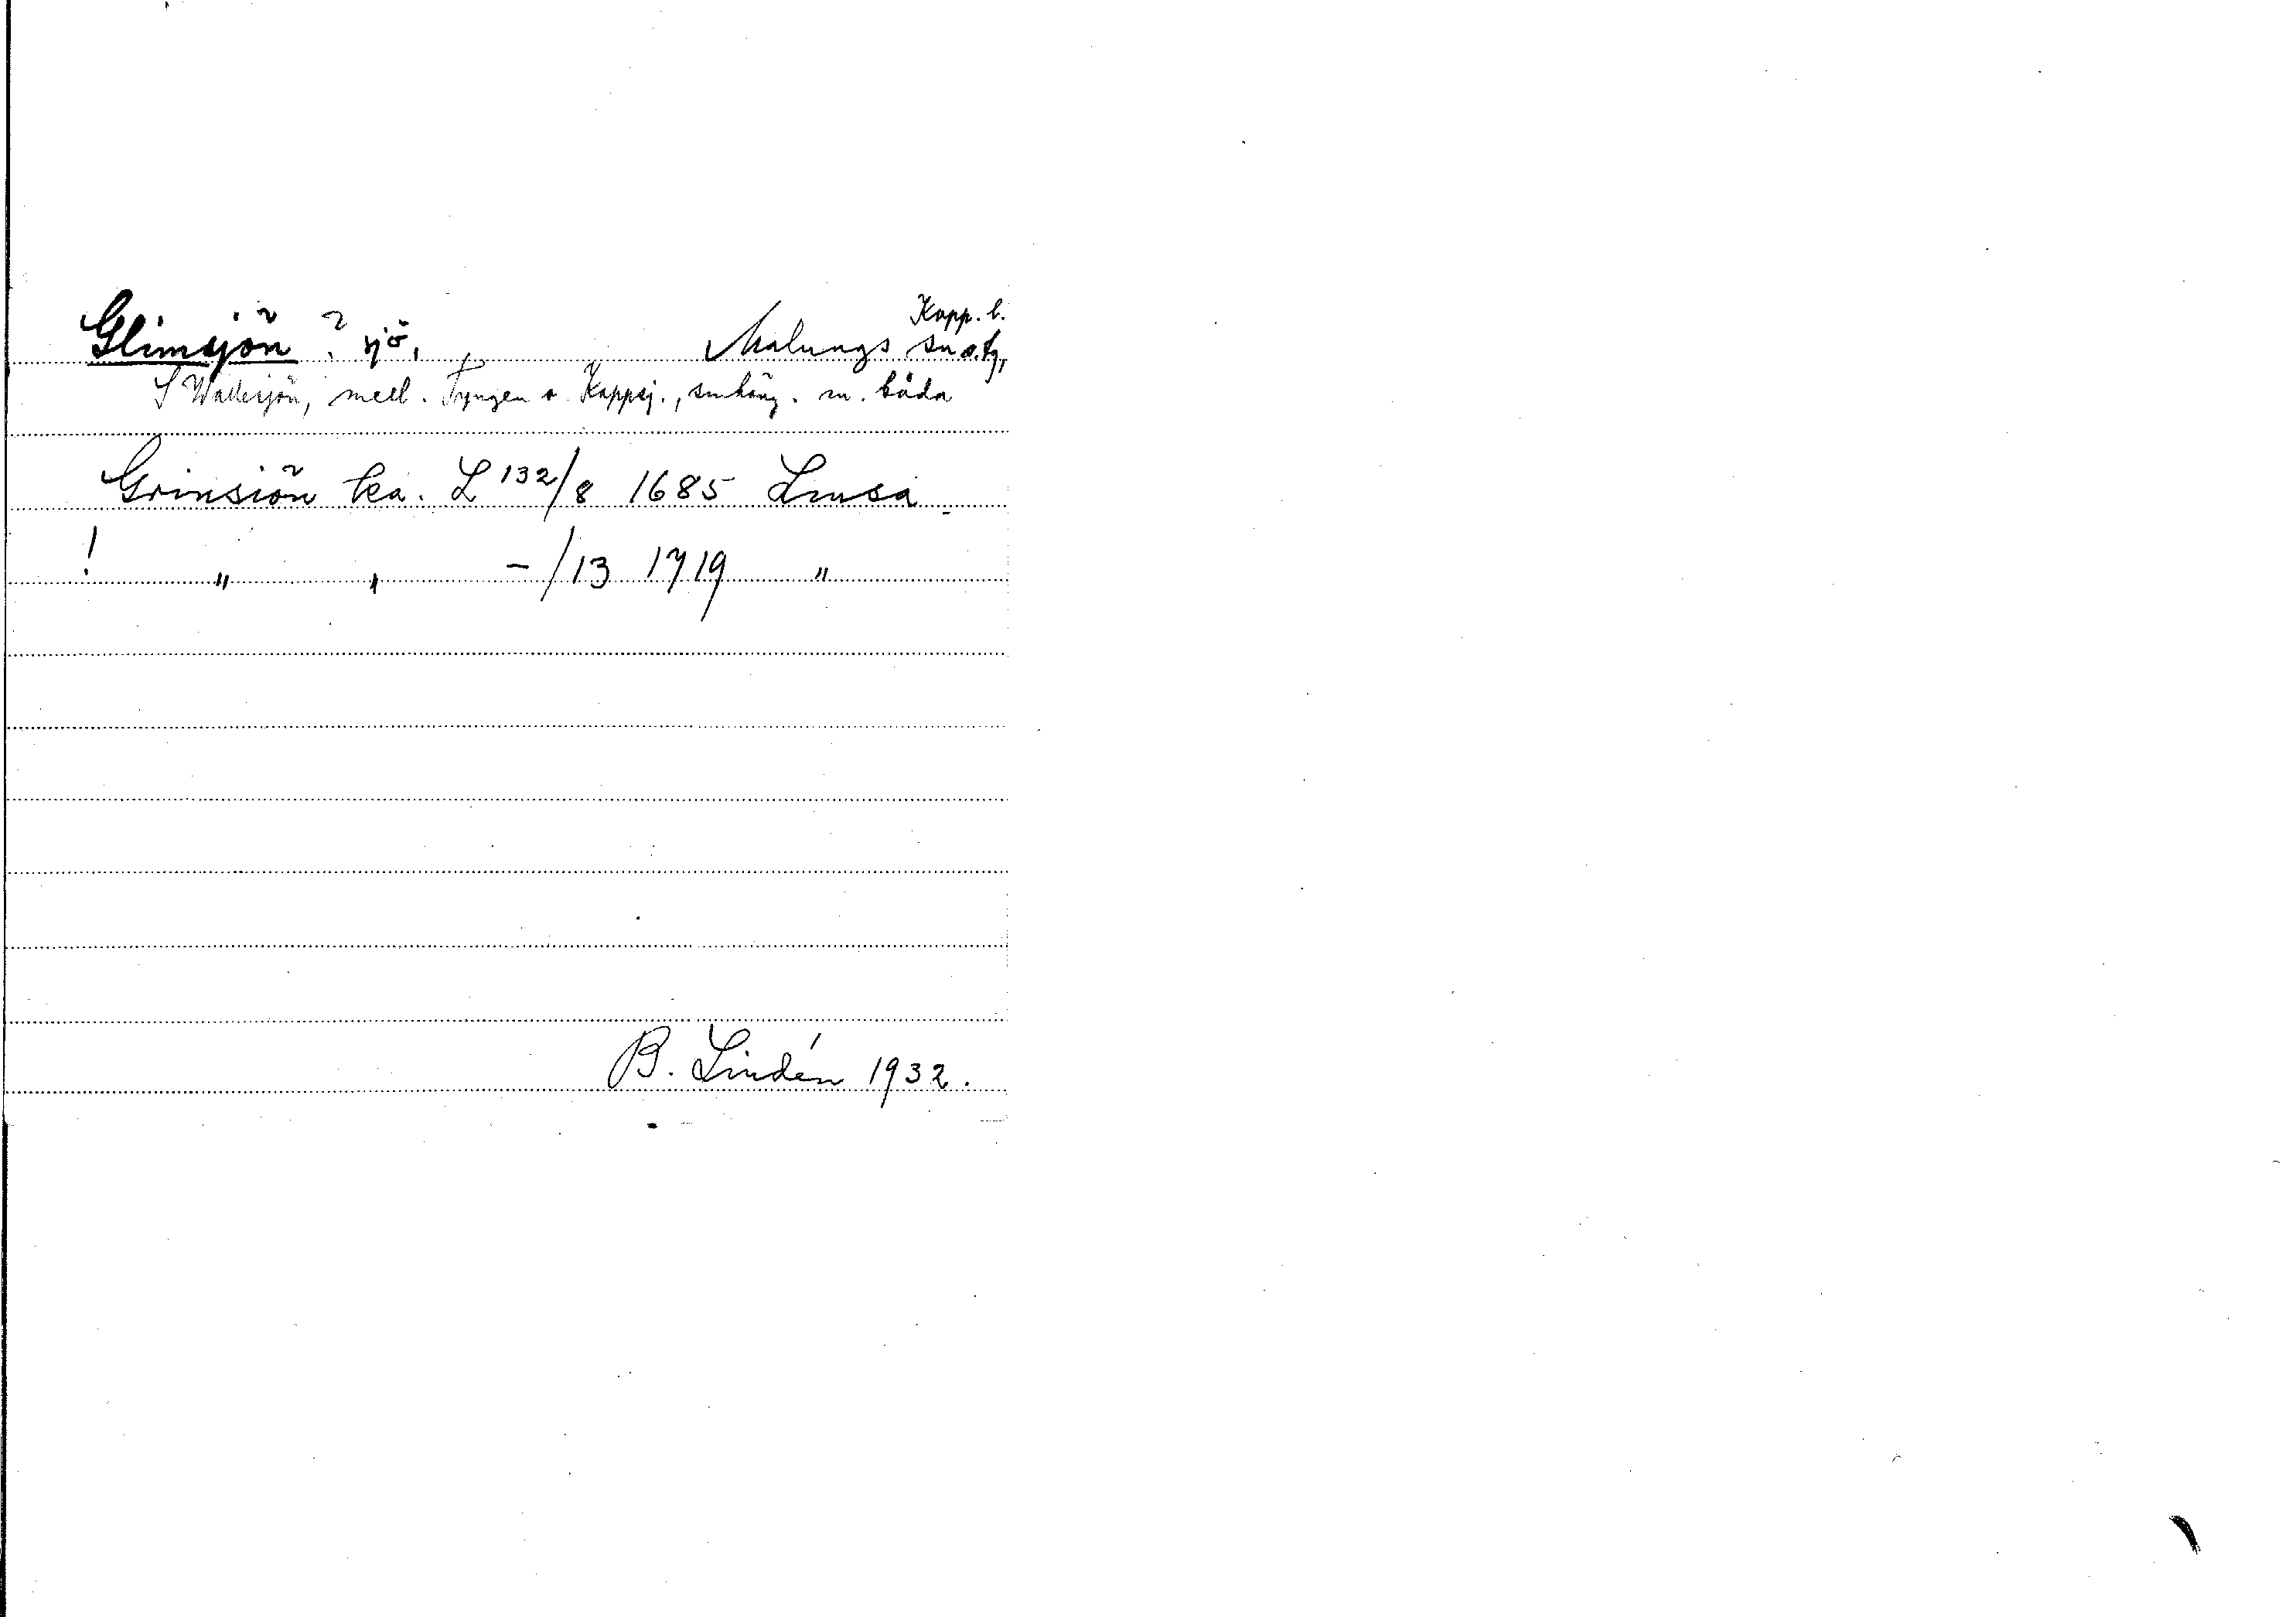 Kopp. l.
Glimsjön ? sjö, Malungs sn o. tg,
S Wallesjön, mell. Tyngen o. Kappsj., smhäng. m. båda
Grinsiön ka. L 132/8 1685 Lmsa
! " " -/13 1719 "
B. Lindén 1932.